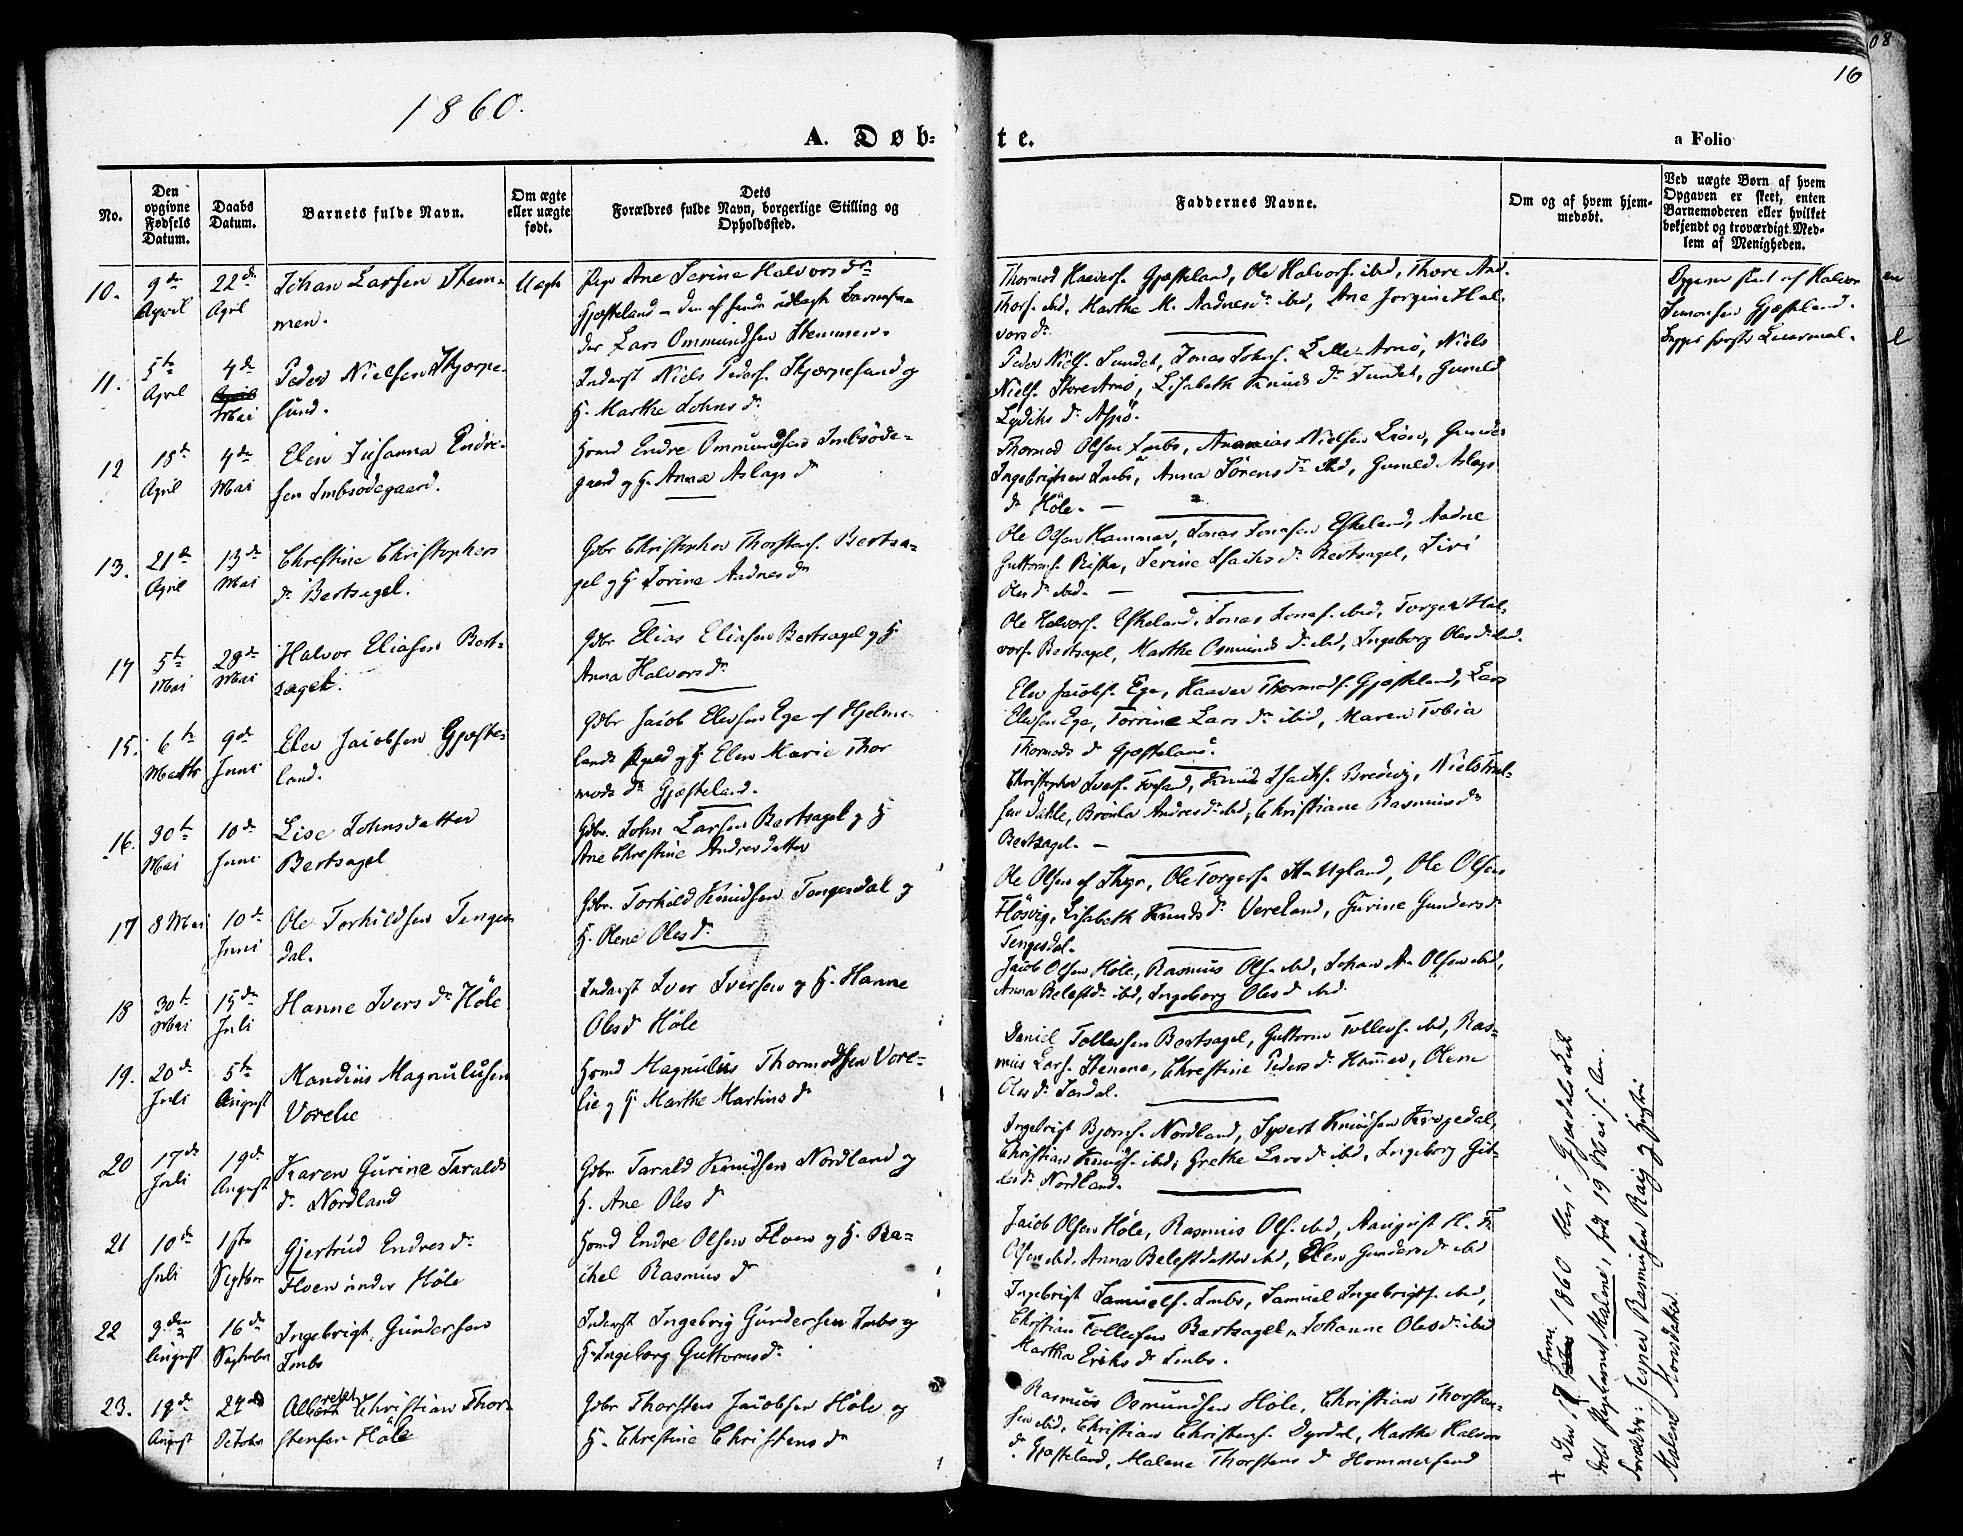 08
16
1860.
A. Døb-
te.
a Folio
No.
Den opgivne Fødsels Datum.
Daabs Datum.
Barnets fulde Navn.
Om ægte eller uægte født.
Dets Forældres fulde Navn, borgerlige Stilling og Opholdssted.
Faddernes Navne.
Om og af hvem hjem-
medøbt.
Ved uægte Børn af hvem
Opgaven er skeet, enten
Barnemoderen eller hvilket
bekjendt og troværdigt Med-
lem af Menigheden.
10. 9de April 22de April Johan Larsen Stem-
men.
Uægte
Pige Ane Serine Halvorsdr
Gjesteland - den af hende udlagte Barnefa-
der Lars Ommundsen Stemmen.
Thormod Haavers. Gjesteland, Ole Halvors. ibid, Thore And-
thors. ibid, Marthe M. Aadnesdr ibid, Ane Jorgine Hal-
vorsdr
Opgaven skeet af Halvor
Simonsen Gjesteland.
11. 5te April 4de Mai Peder Nielsen Skjørpe-
sund.
Inderst Niels Peders. Skjørpesund og
H. Marthe Johnsdr
Peder Niels. Sundet, Jonas Johns. Lille-Arnø, Niels
Niels. StoreArnø, Lisabeth Knudsdr Sundet, Gunild
12 18de April 4de Mai Elen Susanna Endre-
sen Imbsødegaard.
Hsmd Endre Ommundsen Imbsøde-
gaard og H. Anna Aslagsdr
Thormod Olsen Imbs, Ananias Nielsen Liøen, Gunder
Ingebrigtsen Imbs, Anna Sørensdr ibid, Gunild Aslags
dr Høle.
13. 21de April 13de Mai Chrestine Christophers
dr Bertsagel.
Gdbr Christopher Thorstens. Bertsa-
gel og H Torine Aadnesdr
Ole Olsen Hammer, Jonas Jonasen Eskeland, Aadne
Guttorms. Riska, Serine Isachsdr Bertsagel, Siri
Olesdr ibid.
14 5te Mai 28de Mai Halvor Eliasen Bert-
sagel.
Gdbr Elias Eliasen Bertsagel og H
Anna Halvorsdr
Ole Halvors. Eskeland, Jonas Jonas. ibid, Torger Hal-
vors. Bertsagel, Marthe Osmundsdr ibid, Ingeborg Olesdr ibid.
15. 6te Marts 9de Juni Elev Jacobsen Gjeste-
land.
Gdbr Jacob Elevsen Ege af Hjelme-
lands Pgjeld og H Elen Marie Thor
modsdr Gjesteland.
Elev Jacobs. Ege, Haaver Thormods. Gjesteland, Lars
Elevsen Ege, Torrine Larsdr ibid, Maren Tobia
Thormodsdr Gjesteland.
16. 30te Mai 10de Juni Lise Johnsdatter
Bertsagel
Gdbr. John Larsen Bertsagel og H
Ane Chrestine Andersdatter
Christopher Ivers. Fosand, Knud Isachs. Bredvig, Niels
sen Dahle, Brønla Andresdr ibid, Christiane Rasmusdr
Bertsagel.
17 8 Mai 10de Juni Ole Torkildsen Tenges-
dal.
Gdbr. Torkild Knudsen Tengesdal og
H. Olene Olesdr
Ole Olsen af Ole Torgers. Ugland, Ole Olsen
Fløsvig, Lisabeth Knudsdr Vereland, Gurine Gundersdr
Tengesdal.
18 30te Mai 15de Juli Hanne Iversdr Høle
Inderst Iver Iversen og H. Hanne
Olesdr Høle
Jacob Olsen Høle, Rasmus Ols. ibid, Johan A. Olsen ibid,
Anna Belestdr ibid, Ingeborg Olesdr ibid.
19. 20de Juli 5te August Mandius Magnulusen
Vorelie
Hsmd Magnulus Thormodsen Vore-
lie og H Marthe Martinsdr
Daniel Tollevsen Bertsagel, Guttorm Tollevs. ibid, Ras-
mus Lars. Stenene, Chrestine Pedersdr Hammer, Olene
Olesdr Sandal.
20 17de Juli 19de August Karen Gurine Taralds
dr Nordland
Gdbr Tarald Knudsen Nordland og
H. Ane Olesdr
Ingebrigt Bjørns. Nordland, Syvert Knudsen Krogedal,
Christian Knuds. ibid, Grethe Larsdr ibid, Ingeborg Git-
lesdr Nordland.
21 10de Juli 1ste Septbr Gjertrud Endresdr
Floen under Høle
Hsmd Endre Olsen Floen og H. Ra-
chel Rasmusdr
Jacob Olsen Høle, Rasmus Ols. ibid, August H. T.
Olsen ibid, Anna Belestdatter ibid, Elen Gundersdr ibid
22 3die August 16de Septembr Ingebrigt Gundersen
Imbs
Inderst Ingebrig Gundersen Imbs og
H Ingeborg Guttormsdr
Ingebrigt Samuels. Imbs, Samuel Ingebrigts. ibid,
Christian Tollevsen Bertsagel, Johanne Olesdr ibid
Martha Eriksdr Imbs.
23. 19de August 27de October Albert Christian Thor-
stensen Høle
Gdbr Thorsten Jacobsen Høle og
H. Chrestine Christensdr
Rasmus Osmundsen Høle, Christian Thorsten-
sen ibid, Christian Christens. Dyrdal, Marthe Halvors
dr Gjesteland, Malene Thorstensdr Hommersand
+ Den 17 Juni 1860 blev i Gjesdals Kirke
døbt Pigebarnet Malene, født 19 Mai s. An.
Forældre: Jesper Rasmusen Rag og Hustru
Malene Tonsdatter.